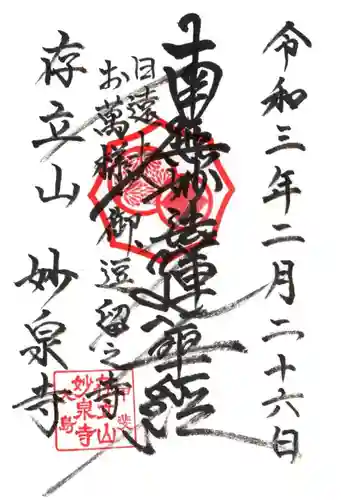 令和三年二月二十六日
南無妙法蓮華経
日遠上人
お萬様御逗留之寺
存立山
妙泉寺
存立山
妙泉寺